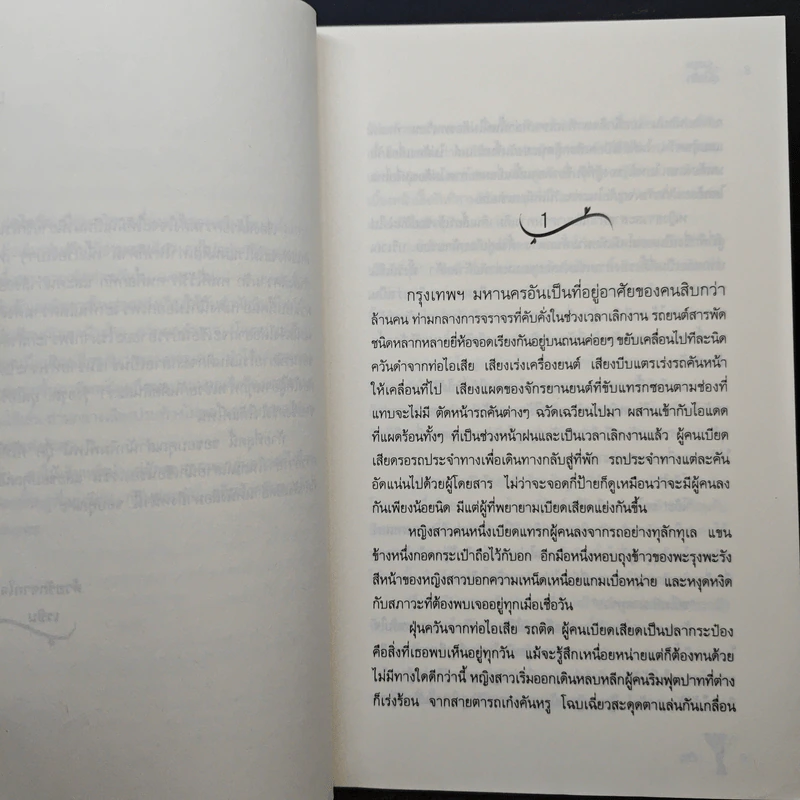 1
กรุงเทพฯ มหานครอันเป็นที่อยู่อาศัยของคนสิบกว่า
ล้านคน ท่ามกลางการจราจรที่คับคั่งในช่วงเวลาเลิกงาน รถยนต์สารพัด
ชนิดหลากหลายยี่ห้อจอดเรียงกันอยู่บนถนนค่อยๆ ขยับเคลื่อนไปทีละนิด
ควันดำจากท่อไอเสีย เสียงเร่งเครื่องยนต์ เสียงบีบแตรเร่งรถคันหน้า
ให้เคลื่อนที่ไป เสียงแผดของจักรยานยนต์ที่ขับแทรกซอนตามช่องที่
แทบจะไม่มี ตัดหน้ารถคันต่างๆ ฉวัดเฉวียนไปมา ผสานเข้ากับไอแดด
ที่แผดร้อนทั้งๆ ที่เป็นช่วงหน้าฝนและเป็นเวลาเลิกงานแล้ว ผู้คนเบียด
เสียดรอรถประจำทางเพื่อเดินทางกลับสู่ที่พัก รถประจำทางแต่ละคัน
อัดแน่นไปด้วยผู้โดยสาร ไม่ว่าจะจอดกี่ป้ายก็ดูเหมือนว่าจะมีผู้คนลง
กันเพียงน้อยนิด มีแต่ผู้ที่พยายามเบียดเสียดแย่งกันขึ้น
หญิงสาวคนหนึ่งเบียดแทรกผู้คนลงจากรถอย่างทุลักทุเล แขน
ข้างหนึ่งกอดกระเป๋าถือไว้กับอก อีกมือหนึ่งหอบถุงข้าวของพะรุงพะรัง
สีหน้าของหญิงสาวบอกความเหน็ดเหนื่อยแกมเบื่อหน่าย และหงุดหงิด
กับสภาวะที่ต้องพบเจออยู่ทุกเมื่อเชื่อวัน
ฝุ่นควันจากท่อไอเสีย รถติด ผู้คนเบียดเสียดเป็นปลากระป๋อง
คือสิ่งที่เธอพบเห็นอยู่ทุกวัน แม้จะรู้สึกเหนื่อยหน่ายแต่ก็ต้องทนด้วย
ไม่มีทางใดดีกว่านี้ หญิงสาวเริ่มออกเดินหลบหลีกผู้คนริมฟุตปาทที่ต่าง
ก็เร่งร้อน จากสายตารถเก๋งคันหรู โฉบเฉี่ยวสะดุดตาแล่นกันเกลื่อน